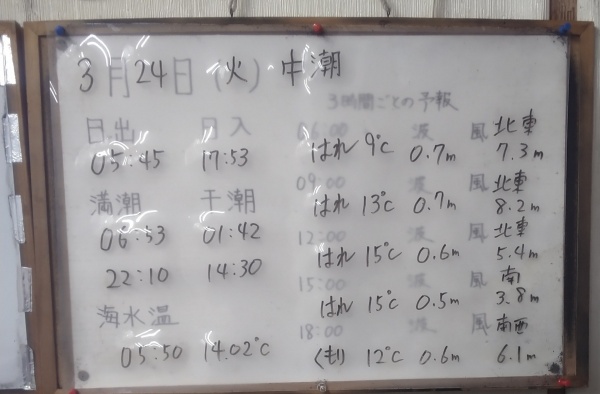 3月24日(火)中潮
3時間ごとの予報
日出 日入
05:45 17:53
満潮 干潮
06:53 01:42
22:10 14:30
海水温
05:50 14.02℃
06:00 波 風 北東
はれ 9℃ 0.7m 7.3m
09:00 波 風 北東
はれ 13℃ 0.7m 8.2m
12:00 波 風 北東
はれ 15℃ 0.6m 5.4m
15:00 波 風 南
はれ 15℃ 0.5m 3.8m
18:00 波 風 南西
くもり 12℃ 0.6m 6.1m